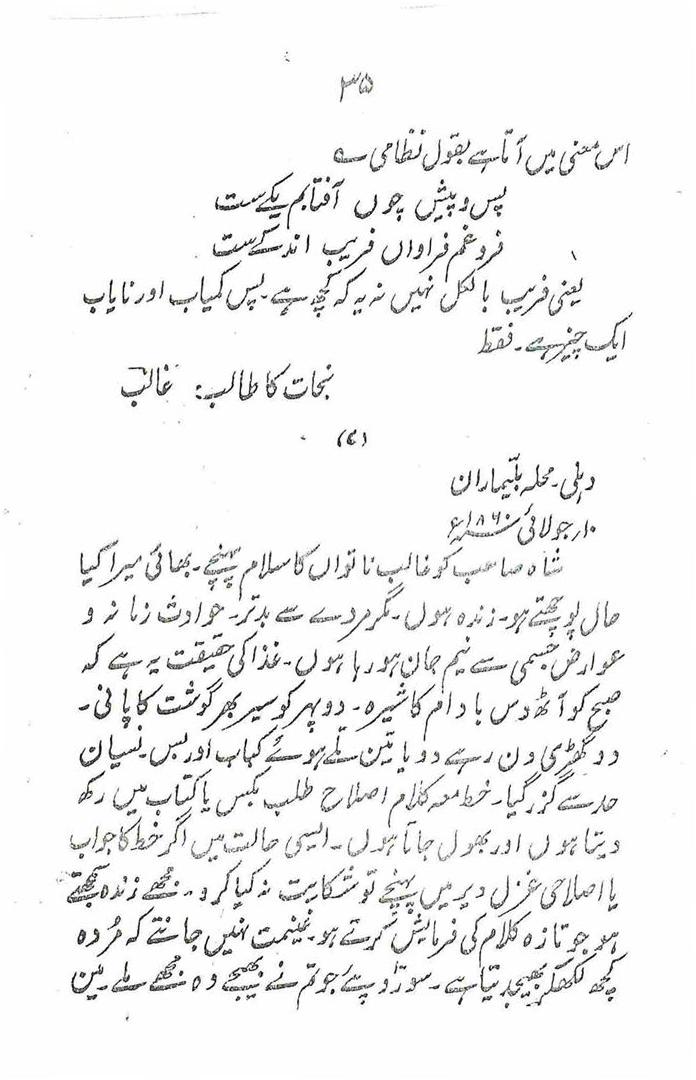 ۳۵
اس معنی میں آتا ہے بقول نظامی ؎
پس و پیش چوں آفتابم یکے ست
فروغم فراواں فریب اند کے ست
یعنی فریب بالکل نہیں نہ یہ کہ کچھ ہے۔ پس کمیاب اور نایاب
ایک چیز ہے۔ فقط
نجات کا طالب: غالب
(۴)
دہلی۔ محلہ بلّیماران
۱۰؍ جولائی سنہ ۱۸۶۰ء
شاہ صاحب کو غالب ناتواں کا سلام پہنچے۔ بھائی میرا کیا
حال پوچھتے ہو۔ زندہ ہوں۔ مگر مردے سے بدتر۔ حوادث زمانہ و
عوارض جسمی سے نیم جان ہو رہا ہوں۔ غذا کی حقیقت یہ ہے کہ
صبح کو آٹھ دس بادام کا شیرہ۔ دوپہر کو سیر بھر گوشت کا پانی۔
دو گھڑی دن رہے دو یا تین تلے ہوئے کباب اور بس۔ نسیان
حد سے گزر گیا۔ خط معہ کلام اصلاح طلب بکس یا کتاب میں رکھ
دیتا ہوں اور بھول جاتا ہوں۔ ایسی حالت میں اگر خط کا جواب
یا اصلاحی غزل دیر میں پہنچے تو شکایت نہ کیا کرو۔ مُجھے زندہ سمجھتے
ہو جو تازہ کلام کی فرمایش کرتے ہو۔ غنیمت نہیں جانتے کہ مُردہ
کچھ لکھکر بھیجدیتا ہے۔ سو روپے جو تم نے بھیجے وہ مُجھے ملے۔ میں